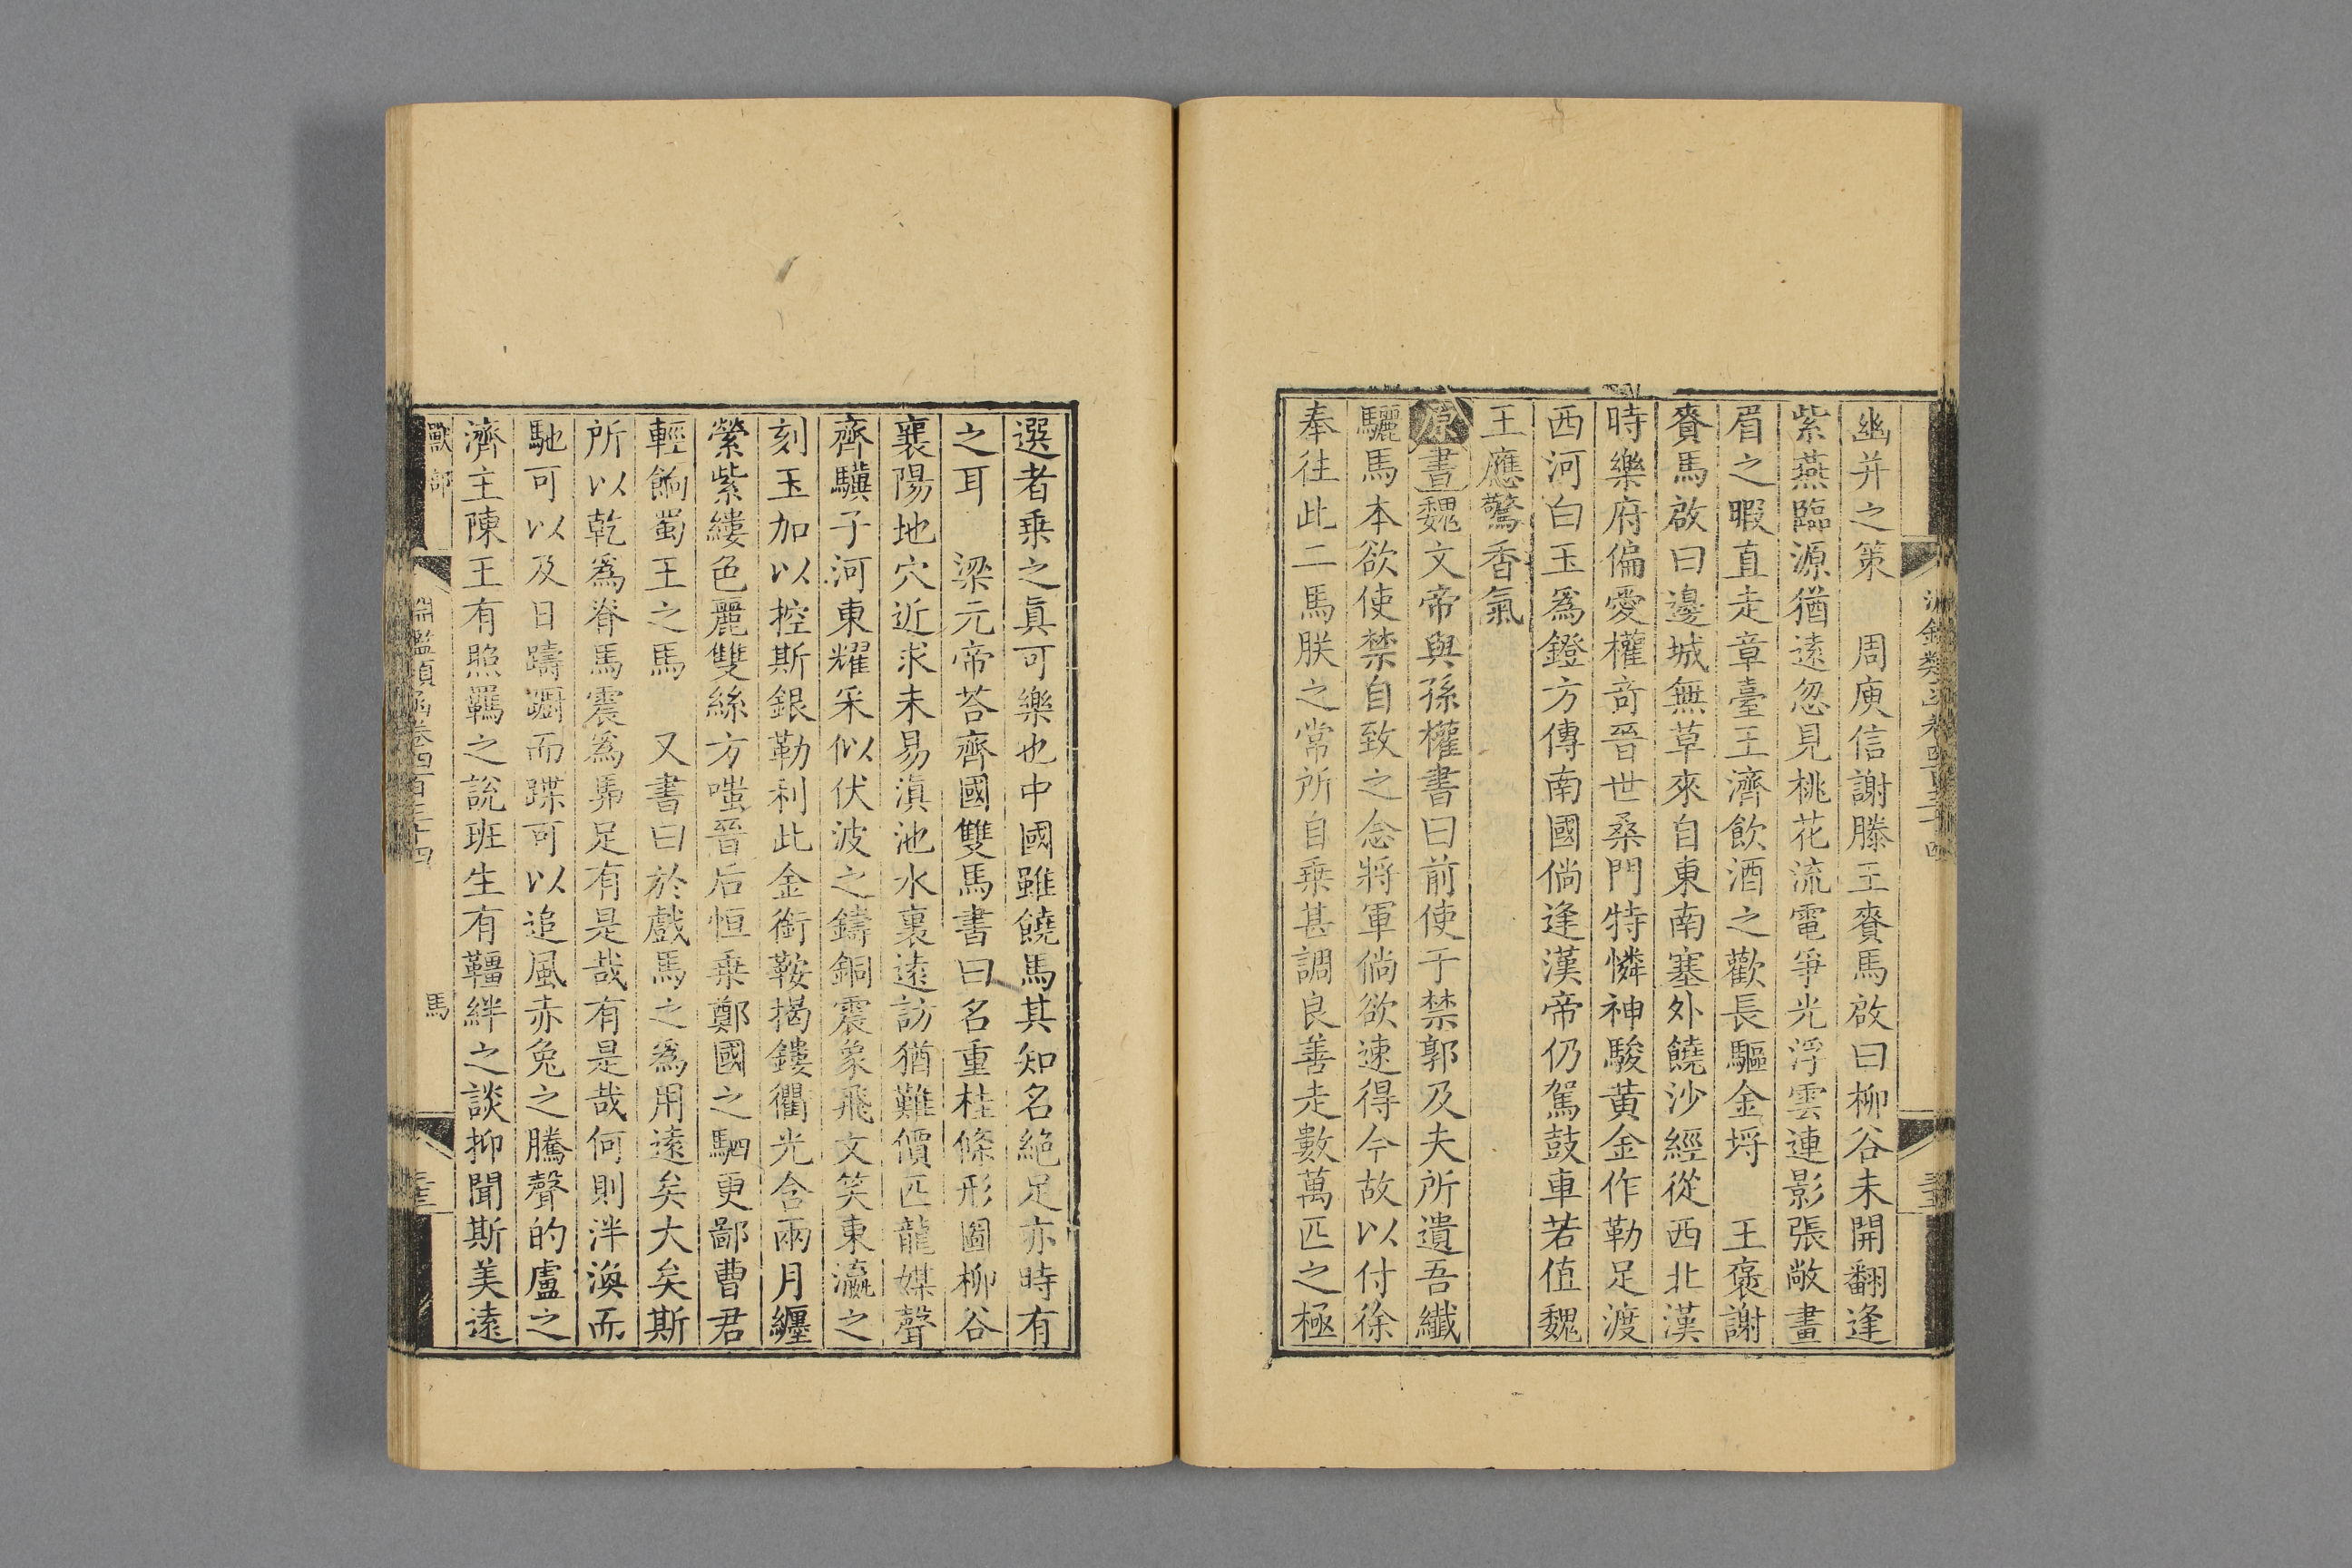 幽并之策　周庾信謝滕王賚馬啟曰柳谷未開翻逢
紫燕臨源猶遠忽見桃花流電爭光浮雲連影張敞畫
眉之暇直走章臺王濟飲酒之歡長驅金埒　王褒謝
賚馬啟曰邊城無草來自東南塞外饒沙經從西北漢
時樂府偏愛權奇晉世桑門特憐神駿黃金作勒足渡
西河白玉爲鐙方傳南國倘逢漢帝仍駕鼓車若值魏
王應驚香氣
原書魏文帝與孫權書曰前使于禁郭及夫所遺吾纖
驪馬本欲使禁自致之念將軍倘欲速得今故以付徐
奉往此二馬朕之常所自乗甚調良善走數萬匹之極
選者乗之眞可樂也中國雖饒馬其知名絶足亦時有
之耳　梁元帝荅齊國雙馬書曰名重桂條形圖柳谷
襄陽地穴近求未易滇池水裏遠訪猶難價匹龍媒聲
齊驥子河東耀采似伏波之鑄銅震象飛文笑東瀛之
刻玉加以控斯銀勒利此金銜鞍揭鏤衢光含兩月纏
縈紫縷色麗雙絲方嗤晉后恒乗鄭國之駟更鄙曹君
輕餉蜀王之馬　又書曰於戲馬之爲用遠矣大矣斯
所以乾爲脊馬震爲馵足有是哉有是哉何則泮渙而
馳可以及日躊躕而蹀可以追風赤兔之騰聲的盧之
濟主陳王有照羈之說班生有韁絆之談抑聞斯美遠
獸部
淵鑑類函卷四百三十四
馬